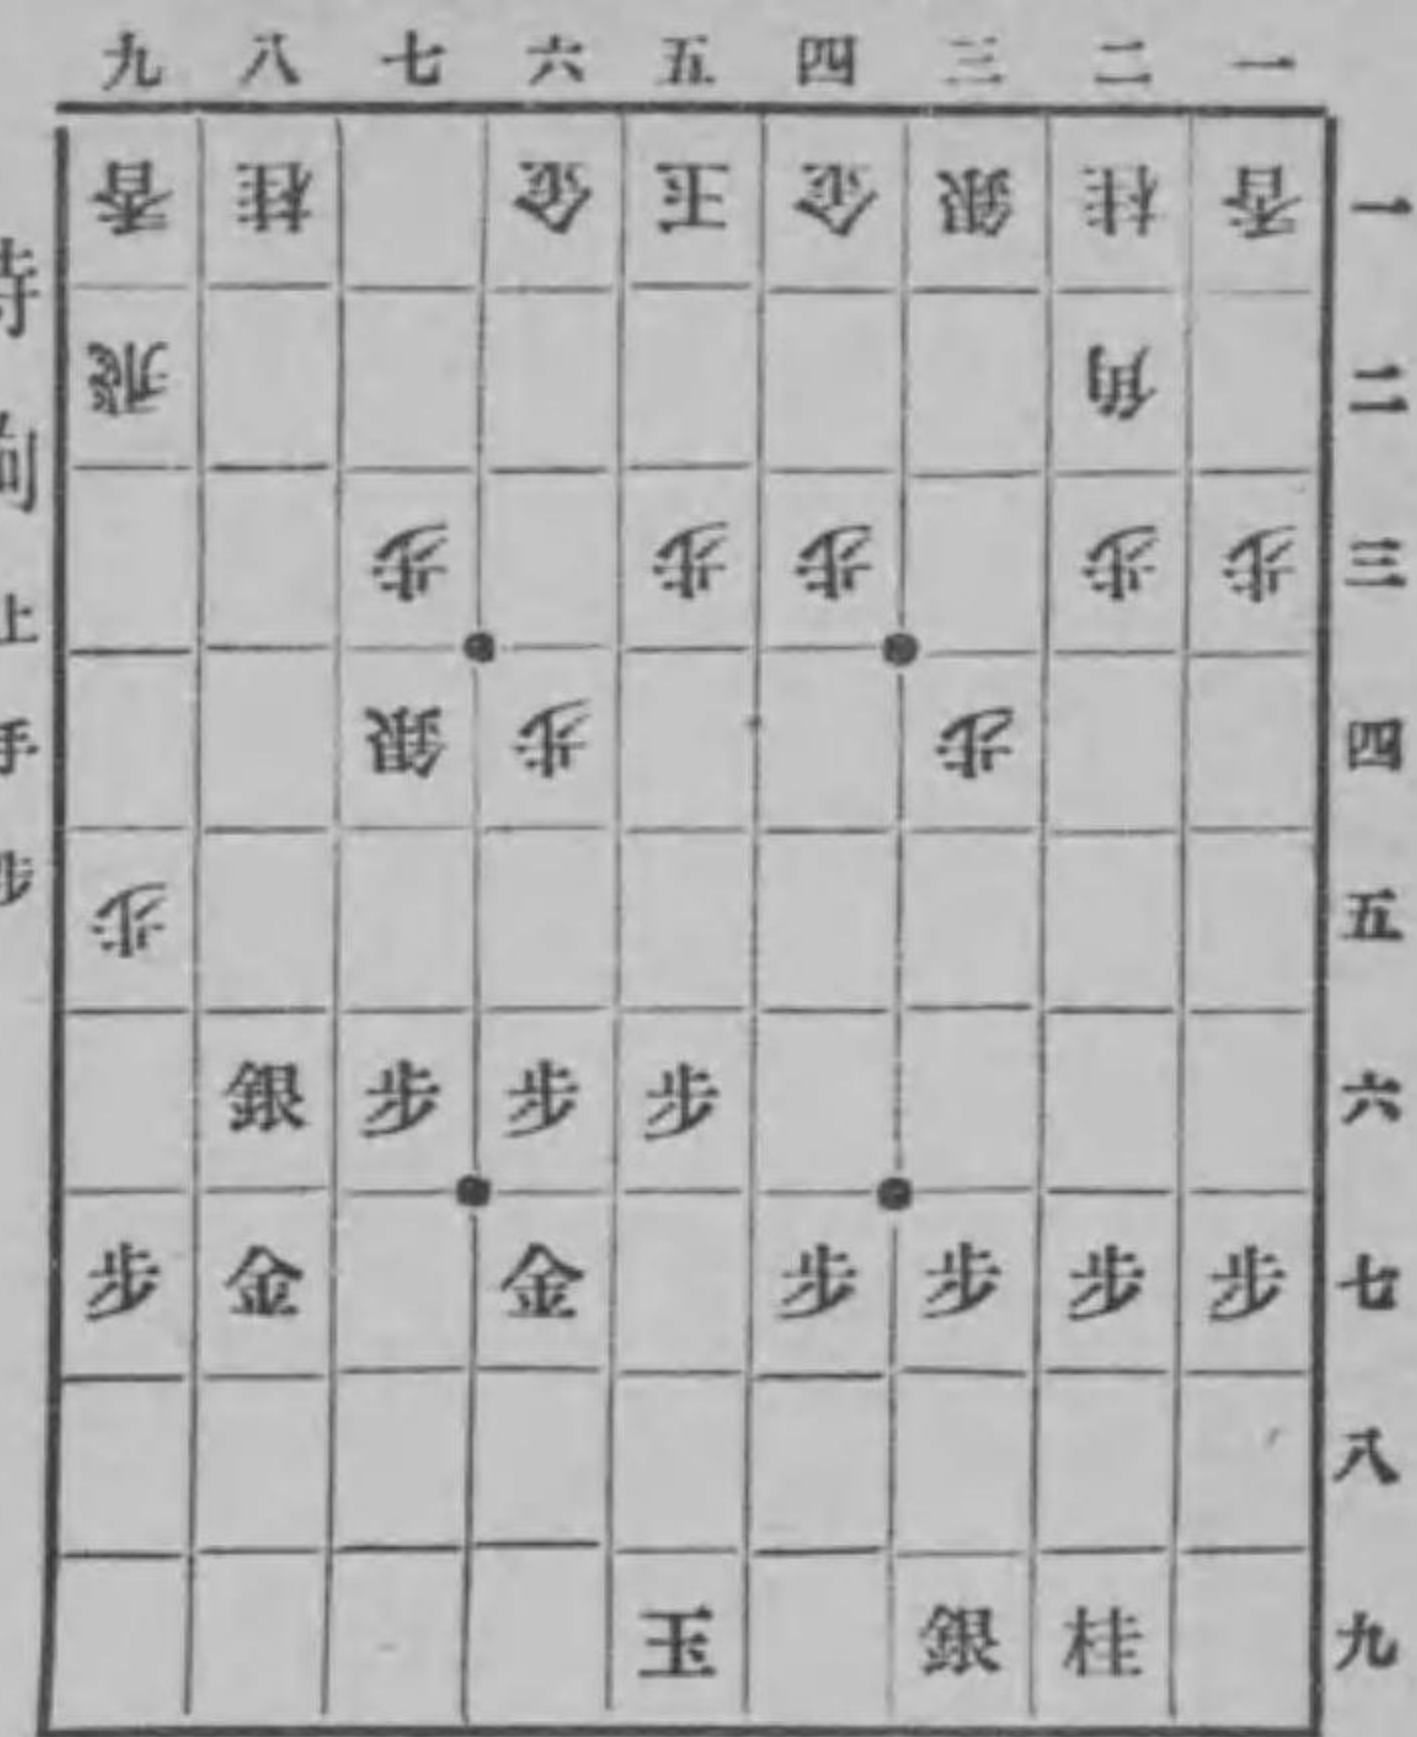 九 八 七 六 五 四 三 二 一
香 桂 金 王 金 銀 桂 香 一
飛 角 二
歩 歩 歩 歩 歩 三
銀 歩 歩 四
歩 五
銀 歩 歩 歩 六
歩 金 金 歩 歩 歩 歩 七
八
玉 銀 桂 九
持駒 上手 歩